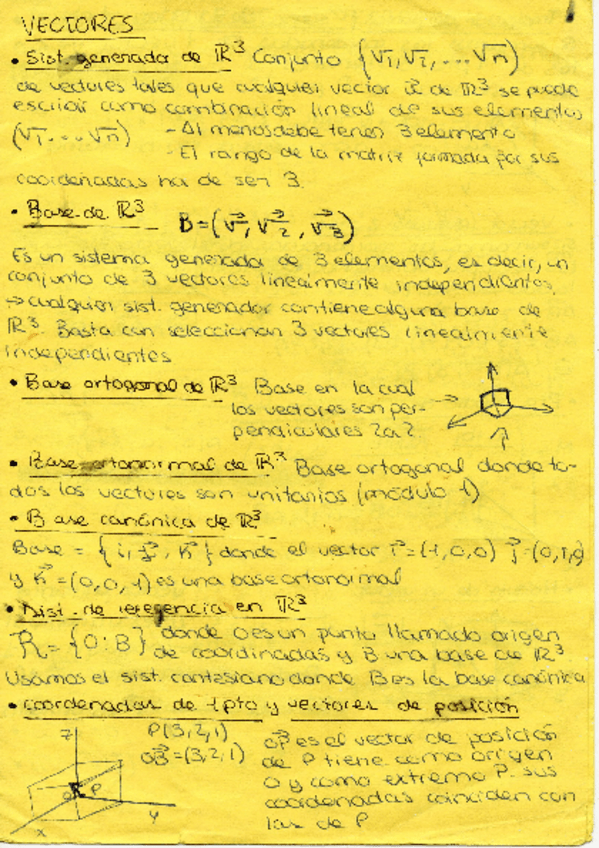 VECTORES
• Sist. generador de ℝ³ Conjunto {v₁, v₂, ... vₙ)
de vectores tales que cualquier vector u⃗ de ℝ³ se puede
escribir como combinación lineal de sus elementos
(v₁ ... vₙ) - Al menos debe tener 3 elemento
- El rango de la matriz formada por sus
coordenadas ha de ser 3.
• Base de ℝ³ B=(v⃗₁, v⃗₂, v⃗₃)
Es un sistema generador de 3 elementos, es decir, un
conjunto de 3 vectores linealmente independientes.
→ cualquier sist. generador contiene alguna base de
ℝ³. Basta con seleccionar 3 vectores linealmente
independientes
• Base ortogonal de ℝ³ Base en la cual
los vectores son per-
pendiculares 2 a 2.
• Base ortonormal de ℝ³ Base ortogonal donde to-
dos los vectores son unitarios (módulo 1)
• Base canónica de ℝ³
Base = {i, j⃗, k⃗} donde el vector i⃗=(1,0,0) j⃗=(0,1,0)
y k⃗=(0,0,1) es una base ortonormal
• Sist. de referencia en ℝ³
R={O:B} donde O es un punto llamado origen
de coordinadas y B una base de ℝ³
Usamos el sist. cartesiano donde B es la base canónica
• coordenadas de 1 pto y vectores de posición
z P(3,2,1) OP⃗ es el vector de posición
(3,2,1) de P tiene como origen
O P O y como extremo P. sus
x y coordenadas coinciden con
las de P